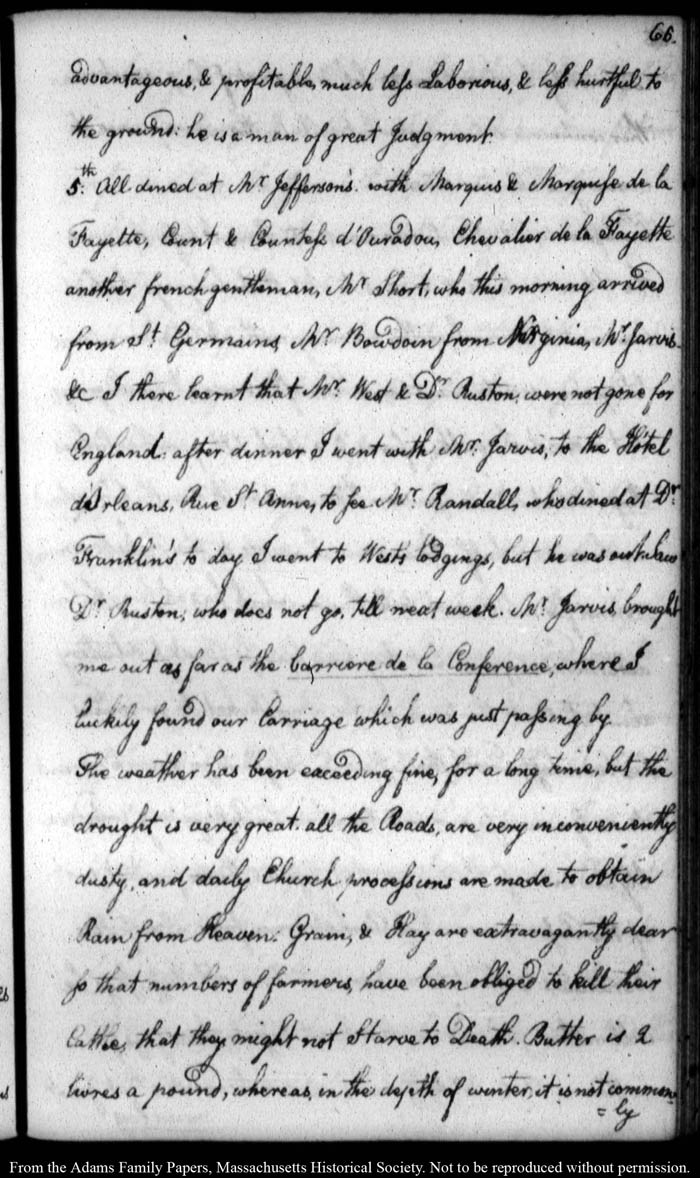 66.
advantageous, & profitable, much less Laborious, & less hurtful to
the ground: he is a man of great Judgment.
5th. All dined at Mr. Jefferson's. with Marquis & Marquise de la
Fayette, Count & Countess d'Ouradou, Chevalier de la Fayette
another french gentleman, Mr Short, who this morning arrived
from St. Germains, Mr. Bowdoin from Virginia, Mr. Jarvis
&c I there learnt that Mr. West & Dr. Ruston, were not gone for
England: after dinner I went with Mr. Jarvis, to the Hôtel
d'Orleans, Rue St. Anne, to see Mr. Randall, who dined at Dr.
Franklin's to day I went to West's lodgings, but he was out: saw
Dr. Ruston, who does not go, till next week. Mr. Jarvis, brought
me out as far as the barriere de la Conference, where I
luckily found our Carriage which was just passing by.
The weather has been exceeding fine, for a long time, but the
drought is very great. all the Roads, are very inconveniently
dusty, and daily Church processions are made to obtain
Rain from Heaven. Grain, & Hay are extravagantly dear
so that numbers of farmers, have been obliged to kill their
Cattle, that they might not Starve to Death. Butter is 2
livres a pound, whereas, in the depth of winter, it is not common
=ly
From the Adams Family Papers, Massachusetts Historical Society. Not to be reproduced without permission.